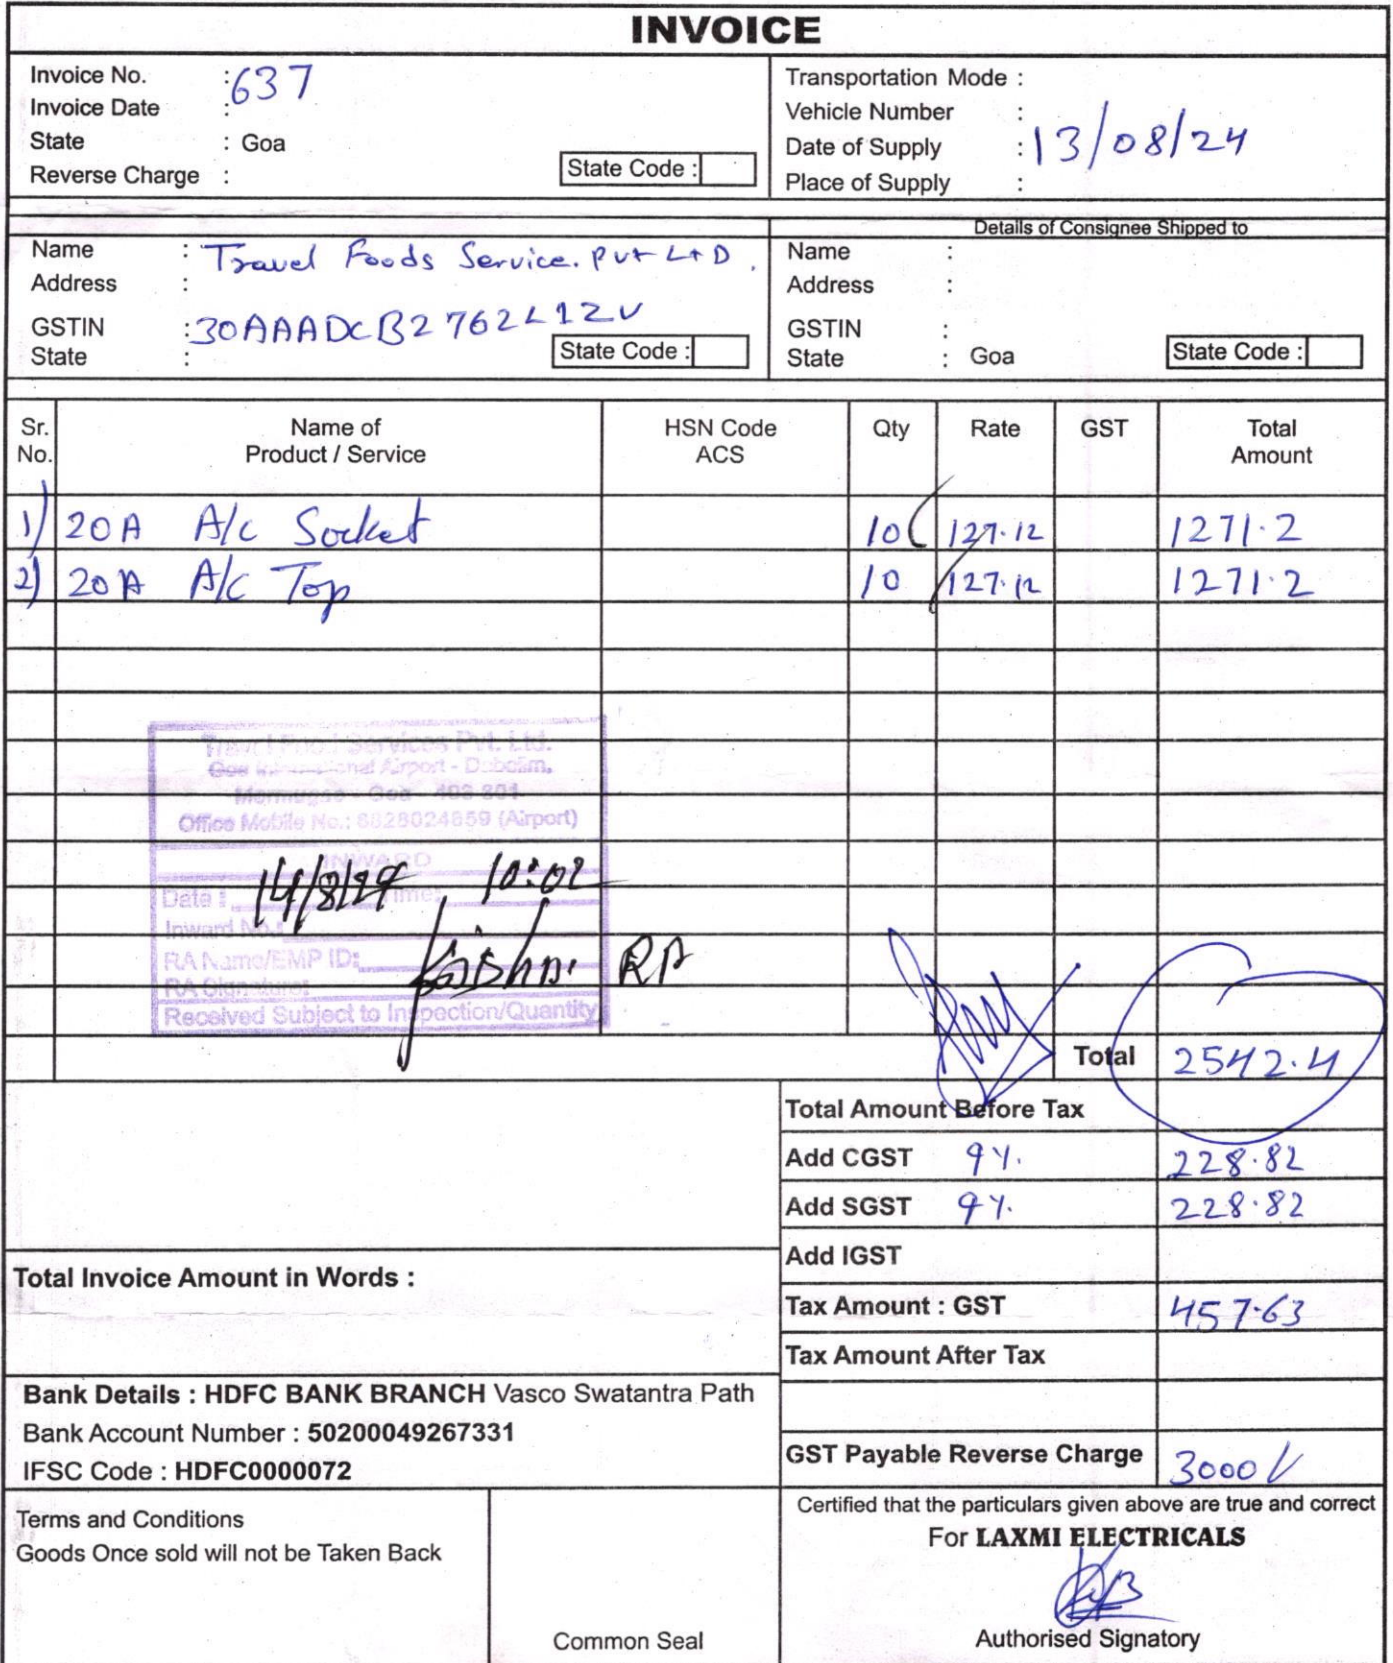 INVOICE
Invoice No. : 637
Invoice Date :
State : Goa
Reverse Charge :
State Code :
Transportation Mode :
Vehicle Number :
Date of Supply : 13/08/24
Place of Supply :
Details of Consignee Shipped to
Name : Travel Foods Service. Pvt LtD.
Address :
GSTIN : 30AAADCB2762L1ZV
State :
State Code :
Name :
Address :
GSTIN :
State : Goa
State Code :
Sr. No. Name of Product / Service HSN Code ACS Qty Rate GST Total Amount
1) 20A A/c Socket 10 127.12 1271.2
2) 20A A/c Top 10 127.12 1271.2
Travel Food Services Pvt. Ltd.
Goa International Airport - Dabolim,
Mormugao - Goa - 403 801
Office Mobile No.: 8828024859 (Airport)
INWARD
Date : 14/8/24 Time: 10:02
Inward No.:
RA Name/EMP ID:
RA Signature: RA
Received Subject to Inspection/Quantity
Total 2542.4
Total Amount Before Tax
Add CGST 9%. 228.82
Add SGST 9%. 228.82
Add IGST
Total Invoice Amount in Words :
Tax Amount : GST 457.63
Tax Amount After Tax
Bank Details : HDFC BANK BRANCH Vasco Swatantra Path
Bank Account Number : 50200049267331
IFSC Code : HDFC0000072
GST Payable Reverse Charge 3000/
Terms and Conditions
Goods Once sold will not be Taken Back
Common Seal
Certified that the particulars given above are true and correct
For LAXMI ELECTRICALS
Authorised Signatory